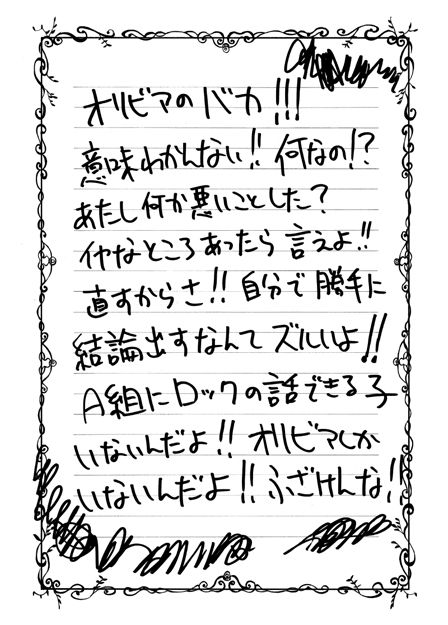 オリビアのバカ!!!
意味わかんない!! 何なの!?
あたし何か悪いことした?
イヤなところあったら言えよ!!
直すからさ!! 自分で勝手に
結論出すなんてズルいよ!!
A組にロックの話できる子
いないんだよ!! オリビアしか
いないんだよ!! ふざけんな!!